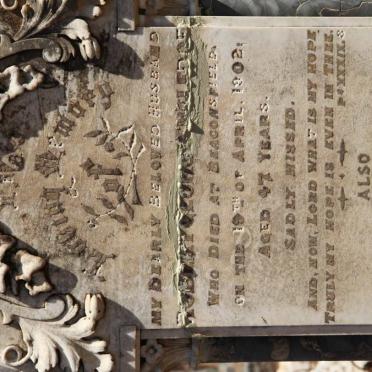 In Loving Memory
of
MY DEARLY BELOVED HUSBAND
WHO DIED AT BEACONSFIELD,
ON THE 19TH OF APRIL, 1902,
AGED 47 YEARS.
SADLY MISSED.
AND, NOW, LORD WHAT IS MY HOPE
TRULY MY HOPE IS EVEN IN THEE.
ALSO